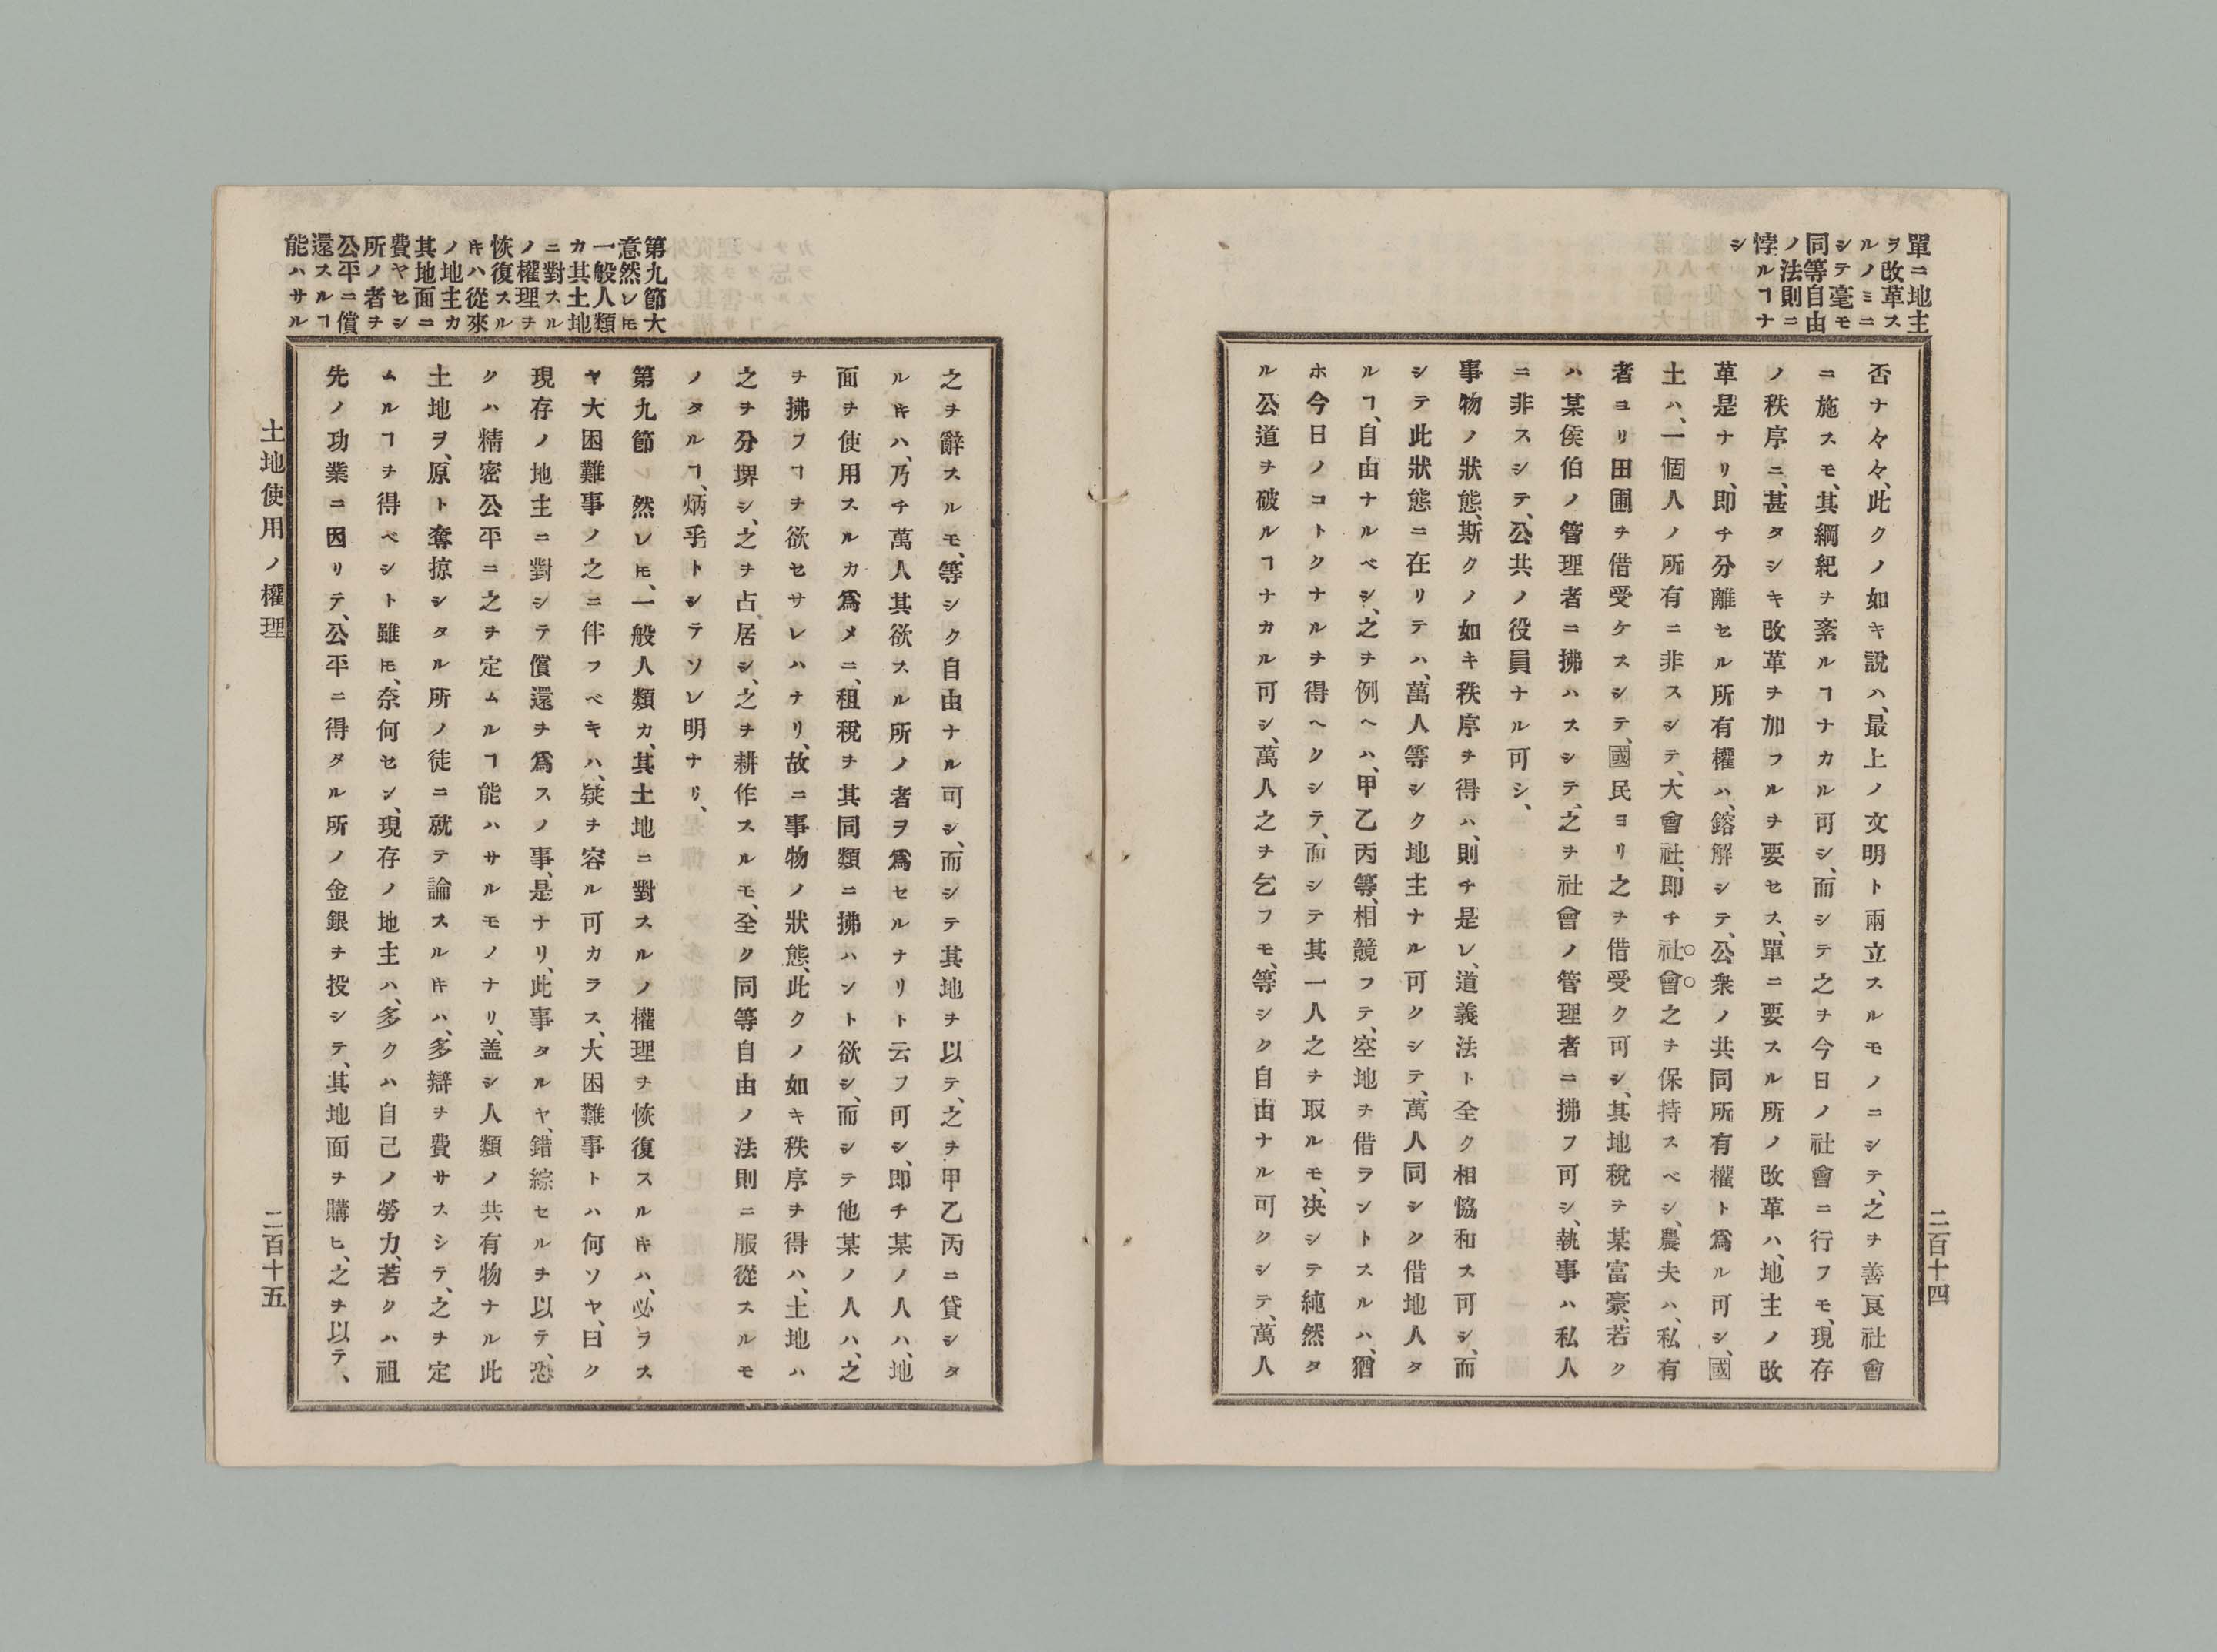 單ニ地主
ヲ改革ス
ルノミニ
シテ毫モ
同等自由
ノ法則ニ
悖ルヿナ
シ
否ナ々々、此クノ如キ說ハ、最上ノ文明ト兩立スルモノニシテ、之ヲ善良社會
ニ施スモ、其綱紀ヲ紊ルヿナカル可シ、而シテ之ヲ今日ノ社會ニ行フモ、現存
ノ秩序ニ、甚タシキ改革ヲ加フルヲ要セス、單ニ要スル所ノ改革ハ、地主ノ改
革是ナリ、卽チ分離セル所有權ハ、鎔解シテ、公衆ノ共同所有權ト爲ル可シ、國
土ハ、一個人ノ所有ニ非スシテ、大會社、卽チ社會之ヲ保持スベシ、農夫ハ、私有
者ヨリ田圃ヲ借受ケスシテ、國民ヨリ之ヲ借受ク可シ、其地稅ヲ某富豪、若ク
ハ某侯伯ノ管理者ニ拂ハスシテ、之ヲ社會ノ管理者ニ拂フ可シ、執事ハ私人
ニ非スシテ、公共ノ役員ナル可シ、
事物ノ狀態、斯クノ如キ秩序ヲ得ハ、則チ是レ、道義法ト全ク相恊和ス可シ、而
シテ此狀態ニ在リテハ、萬人等シク地主ナル可クシテ、萬人同シク借地人タ
ルヿ、自由ナルベシ、之ヲ例ヘハ、甲乙丙等、相競フテ、空地ヲ借ラントスルハ、猶
ホ今日ノコトクナルヲ得ヘクシテ、而シテ其一人之ヲ取ルモ、决シテ純然タ
ル公道ヲ破ルヿナカル可シ、萬人之ヲ乞フモ、等シク自由ナル可クシテ、萬人
二百十四
第九節大
意然レ𪜈
一般人類
カ其土地
ニ對スル
ノ權理ヲ
恢復スル
𪜈ハ從來
ノ地主カ
其地面ニ
費ヤセシ
所ノ者ヲ
公平ニ償
還スルヿ
能ハサル
之ヲ辭スルモ、等シク自由ナル可シ、而シテ其地ヲ以テ、之ヲ甲乙丙ニ貸シタ
ルキハ、乃チ萬人其欲スル所ノ者ヲ爲セルナリト云フ可シ、卽チ某ノ人ハ、地
面ヲ使用スルカ爲メニ、租稅ヲ其同類ニ拂ハント欲シ、而シテ他某ノ人ハ、之
ヲ拂フヿヲ欲セサレハナリ、故ニ事物ノ狀態、此クノ如キ秩序ヲ得ハ、土地ハ
之ヲ分堺シ、之ヲ占居シ、之ヲ耕作スルモ、全ク同等自由ノ法則ニ服從スルモ
ノタルヿ、炳乎トシテソレ明ナリ、
第九節 然レ𪜈、一般人類カ、其土地ニ對スルノ權理ヲ恢復スルキハ、必ラス
ヤ大困難事ノ之ニ伴フベキハ、疑ヲ容ル可カラス、大困難事トハ何ソヤ、曰ク
現存ノ地主ニ對シテ償還ヲ爲スノ事、是ナリ、此事タルヤ、錯綜セルヲ以テ、恐
クハ精密公平ニ之ヲ定ムルヿ能ハサルモノナリ、盖シ人類ノ共有物ナル此
土地ヲ、原ト奪掠シタル所ノ徒ニ就テ論スルキハ、多辯ヲ費サスシテ、之ヲ定
ムルヿヲ得ベシト雖𪜈、奈何セン、現存ノ地主ハ、多クハ自己ノ勞力、若クハ祖
先ノ功業ニ因リテ、公平ニ得タル所ノ金銀ヲ投シテ、其地面ヲ購ヒ、之ヲ以テ、
土地使用ノ權理
二百十五